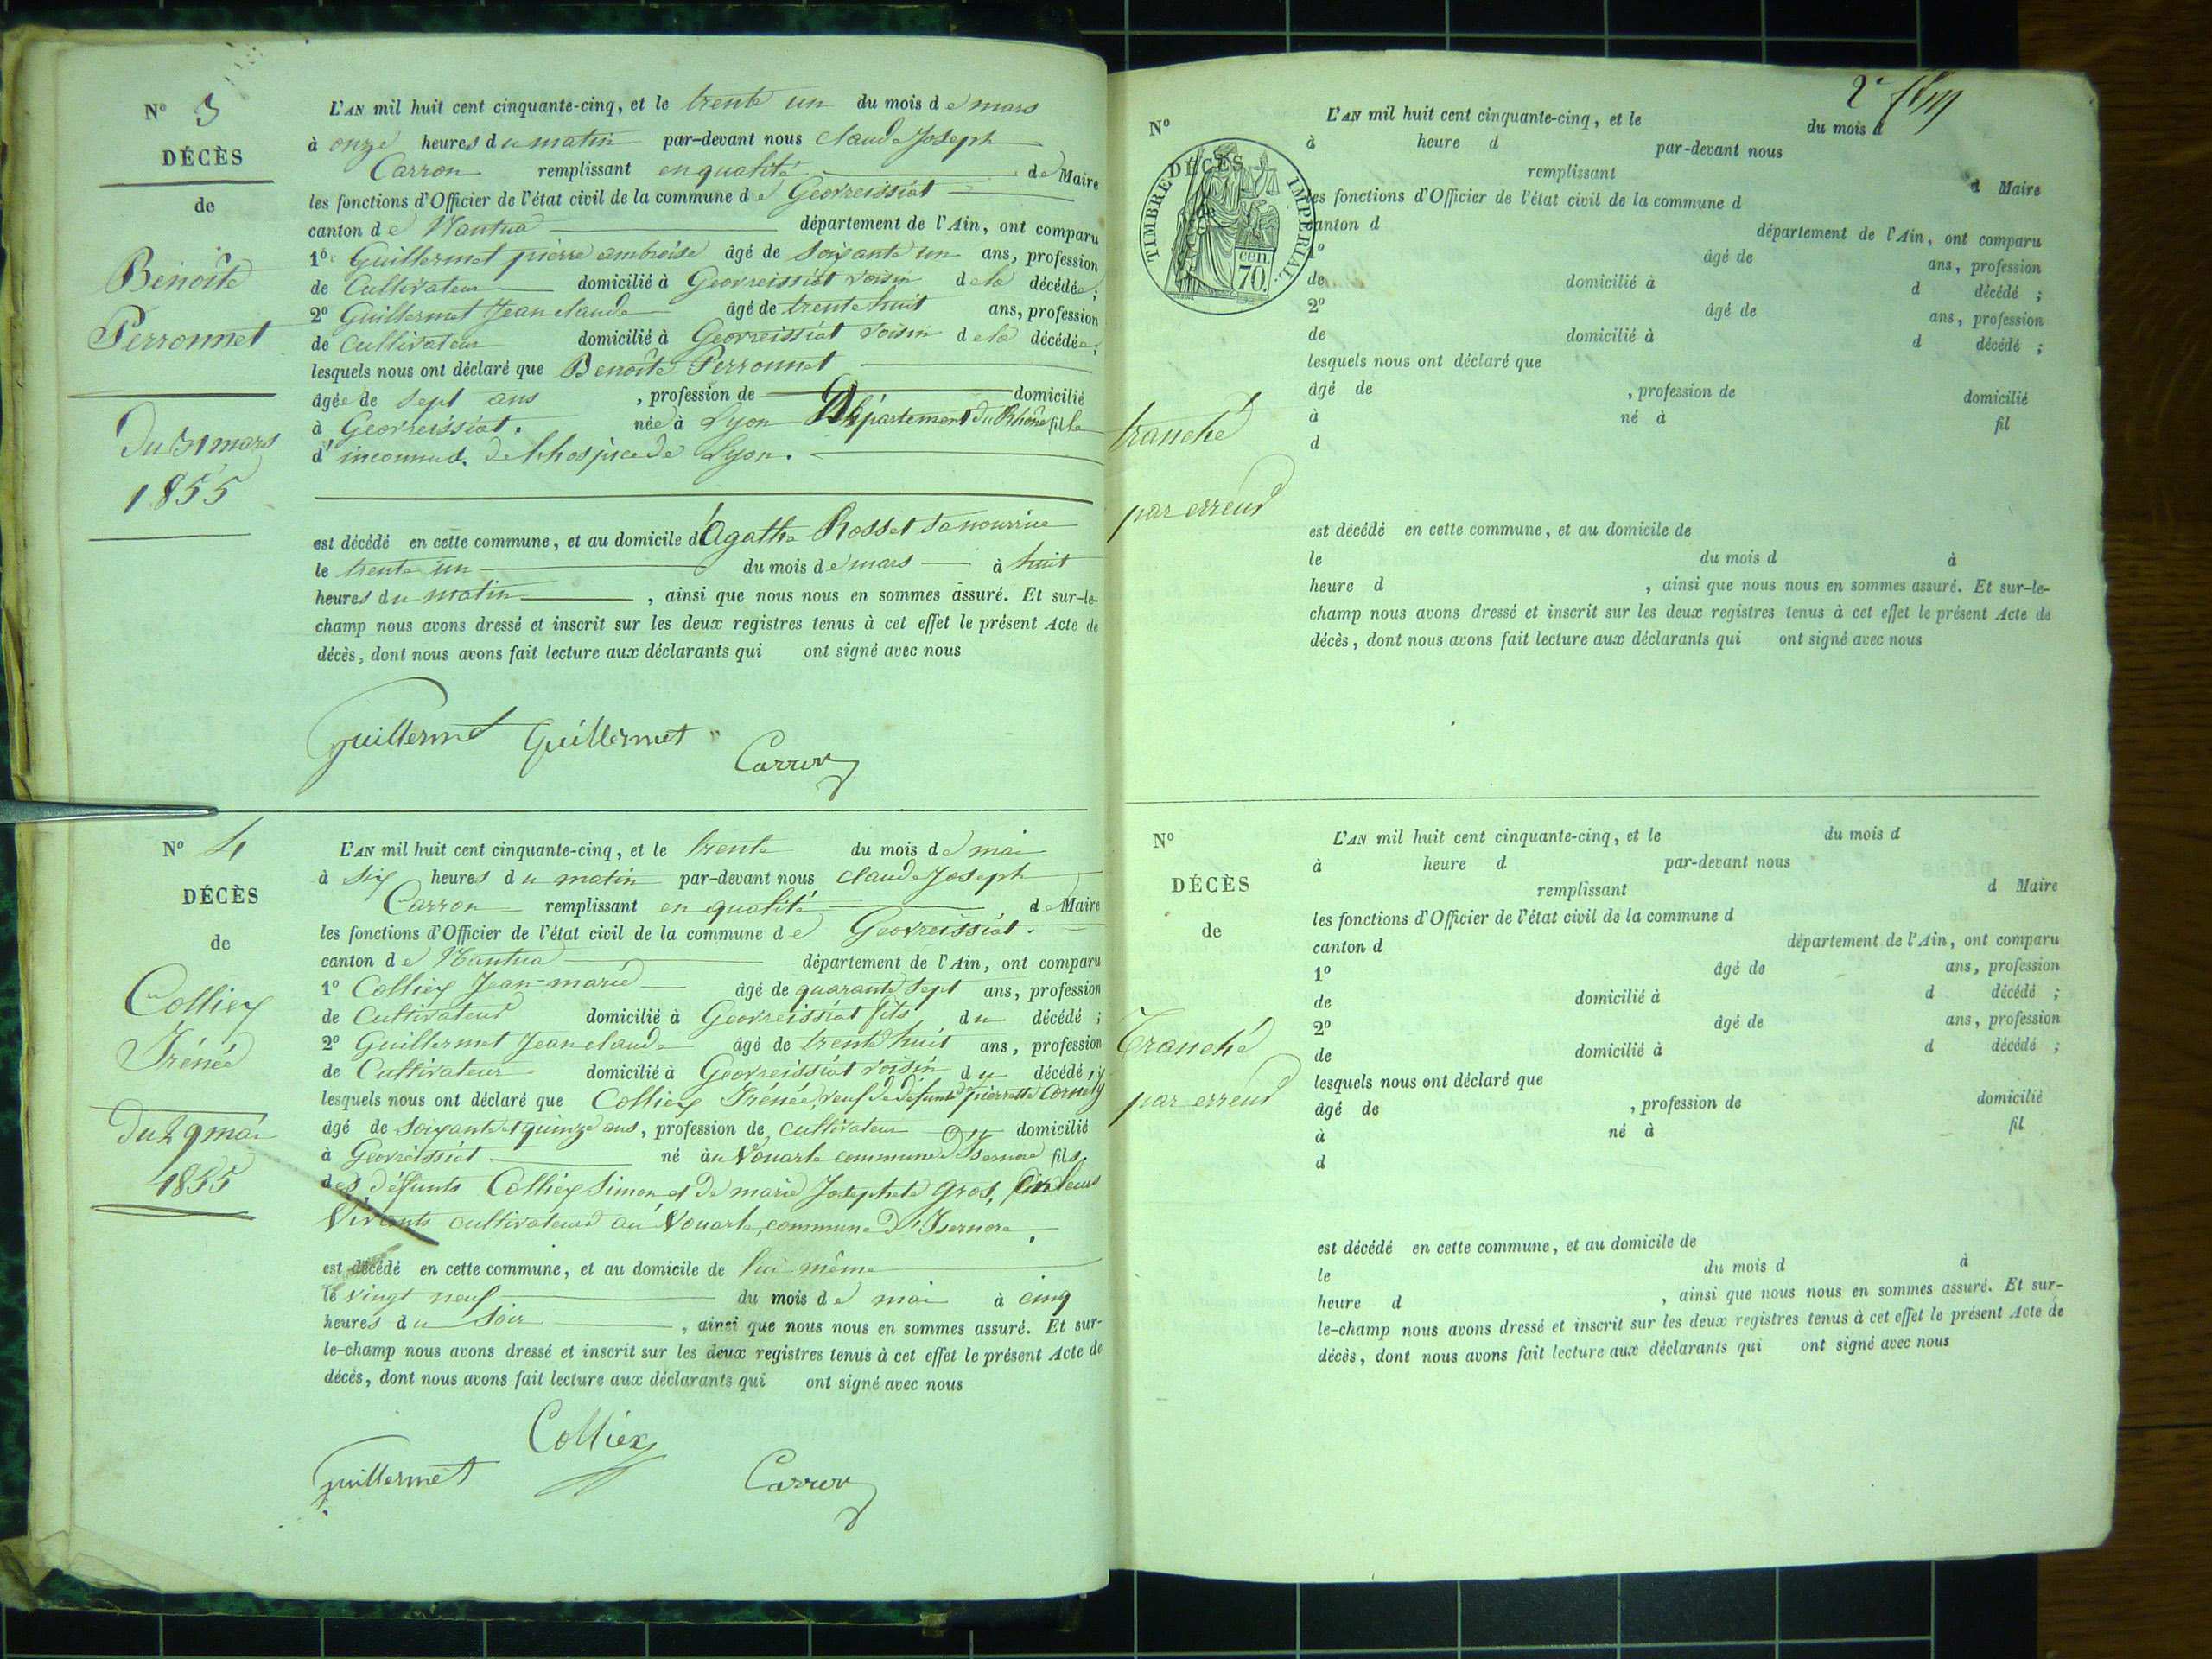 N° 3
DÉCÈS
de
Benoîte
Perronnet
Du 31 mars
1855
L'AN mil huit cent cinquante-cinq, et le trente un du mois de mars
à onze heures du matin par-devant nous Claude Joseph
Carron remplissant en qualité de Maire
les fonctions d'Officier de l'état civil de la commune de Geovreissiat
canton de Nantua département de l'Ain, ont comparu
1° Guillermet pierre ambroise âgé de soixante un ans, profession
de Cultivateur domicilié à Geovreissiat voisin de la décédée ;
2° Guillermet Jean claude âgé de trente huit ans, profession
de cultivateur domicilié à Geovreissiat voisin de la décédée;
lesquels nous ont déclaré que Benoîte Perronnet
âgée de sept ans , profession de domicilié
à Geovreissiat. née à Lyon Département du Rhône fille
d'inconnus. de l'hospice de Lyon.
est décédé en cette commune, et au domicile d'Agathe Rosset sa nourrice
le trente un du mois de mars à huit
heures du matin , ainsi que nous nous en sommes assuré. Et sur-le-
champ nous avons dressé et inscrit sur les deux registres tenus à cet effet le présent Acte de
décès, dont nous avons fait lecture aux déclarants qui ont signé avec nous
Guillermet Guillermet Carron
N° 4
DÉCÈS
de
Colliex
Irénée
Du 29 mai
1855
L'AN mil huit cent cinquante-cinq, et le trente du mois de mai
à six heures du matin par-devant nous Claude Joseph
Carron remplissant en qualité de Maire
les fonctions d'Officier de l'état civil de la commune de Geovreissiat.
canton de Nantua département de l'Ain, ont comparu
1° Colliex Jean-marie âgé de quarante sept ans, profession
de Cultivateur domicilié à Geovreissiat fils du décédé ;
2° Guillermet Jean claude âgé de trente huit ans, profession
de Cultivateur domicilié à Geovreissiat voisin du décédé ;
lesquels nous ont déclaré que Colliex Irénée, veuf de défunte pierrette Cornely
âgé de soixante et quinze ans, profession de cultivateur domicilié
à Geovreissiat né au Vouarle commune d'Isernore fils
des défunts Colliex Simon et de marie Josephete gros, de leurs
vivants cultivateurs au Vouarle, commune d'Isernore.
est décédé en cette commune, et au domicile de lui même
le vingt neuf du mois de mai à cinq
heures du soir , ainsi que nous nous en sommes assuré. Et sur-
le-champ nous avons dressé et inscrit sur les deux registres tenus à cet effet le présent Acte de
décès, dont nous avons fait lecture aux déclarants qui ont signé avec nous
Colliex
Guillermet Carron
2e
N°
DÉCÈS
de
TIMBRE IMPÉRIAL
70 cen.
tranché
par erreur
L'AN mil huit cent cinquante-cinq, et le du mois d
à heure d par-devant nous
remplissant d Maire
les fonctions d'Officier de l'état civil de la commune d
canton d département de l'Ain, ont comparu
1° âgé de ans, profession
de domicilié à d décédé ;
2° âgé de ans, profession
de domicilié à d décédé ;
lesquels nous ont déclaré que
âgé de , profession de domicilié
à né à fil
d
est décédé en cette commune, et au domicile de
le du mois d à
heure d , ainsi que nous nous en sommes assuré. Et sur-le-
champ nous avons dressé et inscrit sur les deux registres tenus à cet effet le présent Acte de
décès, dont nous avons fait lecture aux déclarants qui ont signé avec nous
N°
DÉCÈS
de
Tranché
par erreur
L'AN mil huit cent cinquante-cinq, et le du mois d
à heure d par-devant nous
remplissant d Maire
les fonctions d'Officier de l'état civil de la commune d
canton d département de l'Ain, ont comparu
1° âgé de ans, profession
de domicilié à d décédé ;
2° âgé de ans, profession
de domicilié à d décédé ;
lesquels nous ont déclaré que
âgé de , profession de domicilié
à né à fil
d
est décédé en cette commune, et au domicile de
le du mois d à
heure d , ainsi que nous nous en sommes assuré. Et sur-
le-champ nous avons dressé et inscrit sur les deux registres tenus à cet effet le présent Acte de
décès, dont nous avons fait lecture aux déclarants qui ont signé avec nous